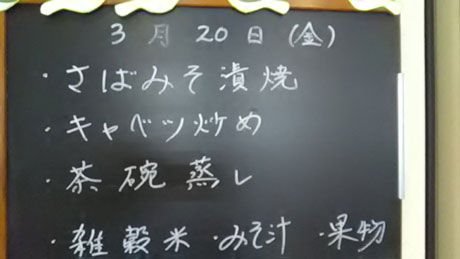 3月20日(金)
・さばみそ漬焼
・キャベツ炒め
・茶碗蒸し
・雑穀米・みそ汁・果物